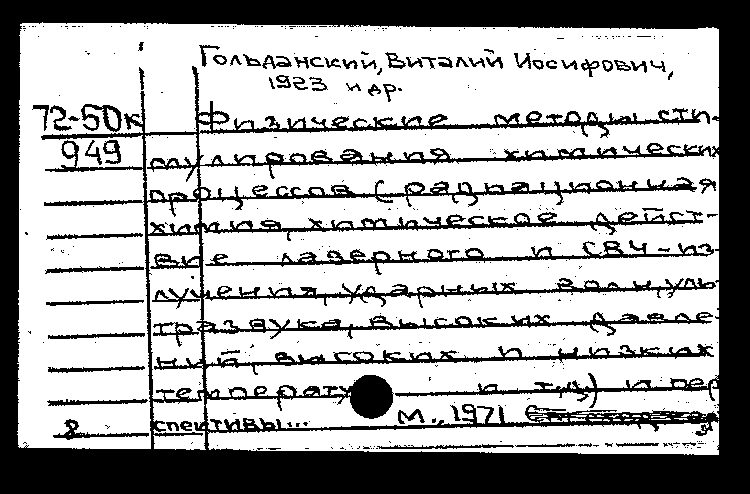 Гольданский, Виталий Иосифович,
1923 и др.
72-50к Физические методы сти-
949 мулирования химических
процессов (радиационная
химия, химическое дейст-
вие лазерного и СВЧ-из-
лучения, ударных волн, уль-
тразвука, высоких давле-
ний, высоких и низких
температу и т.д.) и пер
8 спективы... М., 1971